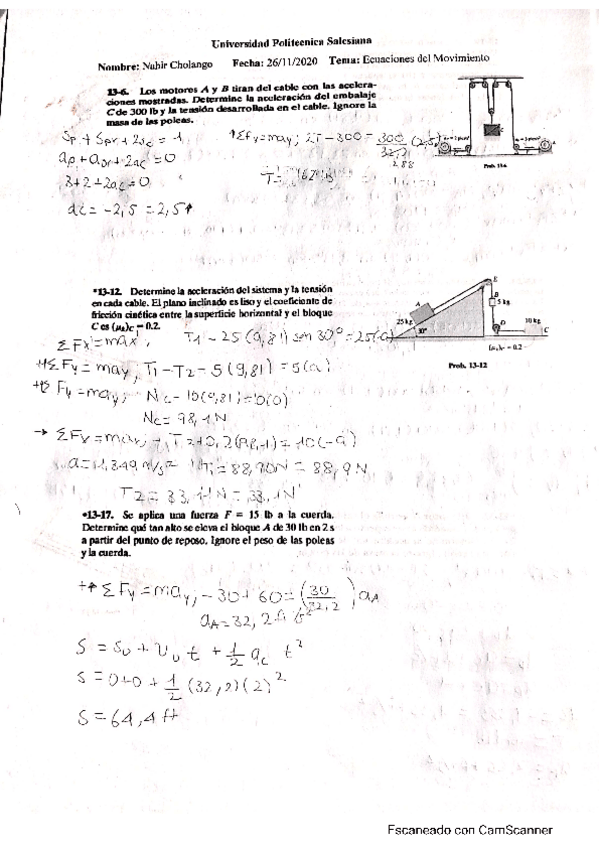 Universidad Politecnica Salesiana
Nombre: Nahir Cholango Fecha: 26/11/2020 Tema: Ecuaciones del Movimiento
13-6. Los motores A y B tiran del cable con las acelera-
ciones mostradas. Determine la aceleración del embalaje
C de 300 lb y la tensión desarrollada en el cable. Ignore la
masa de las poleas.
ap + ap' + 2ac = 0
3+2+2ac = 0
ac = -2,5 = 2,5↑
↑ΣFy = may; 2T - 300 = 300/32,2 (2,5)
Prob. 13-6
*13-12. Determine la aceleración del sistema y la tensión
en cada cable. El plano inclinado es liso y el coeficiente de
fricción cinética entre la superficie horizontal y el bloque
C es (μk)C = 0.2.
E
B
5 kg
A
25 kg
30°
D
10 kg
C
(μk)C = 0.2
Prob. 13-12
ΣFx' = max', T1 - 25(9,81) sen 30° = 25(a)
+↑ΣFy = may, T1 - T2 - 5(9,81) = 5(a)
+↑ΣFy = may; Nc - 10(9,81) = 10(0)
Nc = 98,1N
→ ΣFx = max; -T2 + 0,2(98,1) = 10(-a)
= 88,90N = 88,9N
T2 = 33,11N = 33,1N
*13-17. Se aplica una fuerza F = 15 lb a la cuerda.
Determine qué tan alto se eleva el bloque A de 30 lb en 2 s
a partir del punto de reposo. Ignore el peso de las poleas
y la cuerda.
+↑ΣFy = may; -30 + 60 = (30/32,2) aA
aA = 32,2
S = S0 + V0 t + 1/2 ac t²
S = 0+0 + 1/2 (32,2)(2)²
S = 64,4 ft
Escaneado con CamScanner